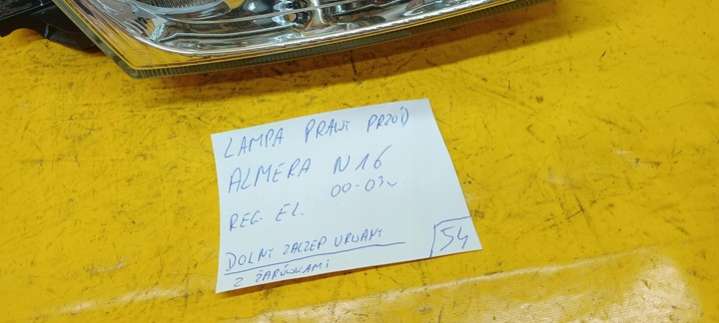 LAMPA PRAWY PRZÓD
ALMERA N16
00-03r
REG. EL.
DOLNY ZACZEP URWANY
Z ŻARÓWKAMI
54